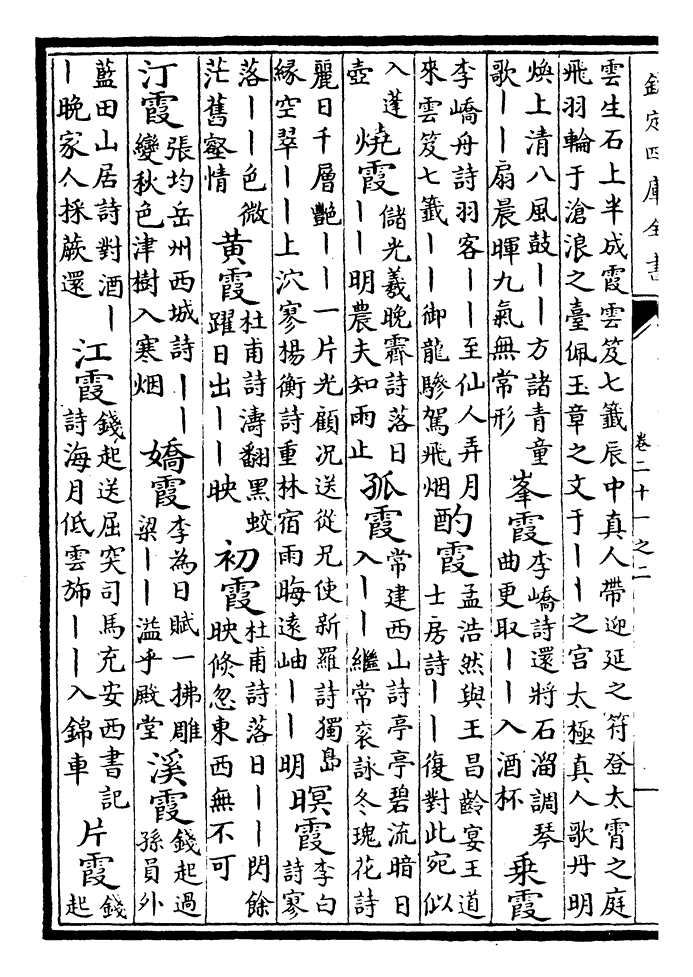 欽定四庫全書
卷二十一之二
雲生石上半成霞雲笈七籤辰中真人帶迎延之符登太霄之庭
飛羽輪于滄浪之臺佩玉章之文于丨丨之宮太極真人歌丹明
煥上清八風鼓丨丨方諸青童
歌丨丨扇晨暉九氣無常形
峯霞
李嶠詩還將石溜調琴
曲更取丨丨入酒杯
乗霞
李嶠舟詩羽客丨丨至仙人弄月
來雲笈七籤丨丨御龍驂駕飛烟
酌霞
孟浩然與王昌齡宴王道
士房詩丨丨復對此宛似
入蓬
壺
燒霞
儲光羲晚霽詩落日
丨丨明農夫知雨止
孤霞
常建西山詩亭亭碧流暗日
入丨丨繼常衮詠冬瑰花詩
麗日千層艷丨丨一片光顧况送從兄使新羅詩獨島
緣空翠丨丨上泬寥楊衡詩重林宿雨晦遠岫丨丨明
暝霞
李白
詩寥
落丨丨色微
茫舊壑情
黄霞
杜甫詩濤翻黑蛟
躍日出丨丨映
初霞
杜甫詩落日丨丨閃餘
映倏忽東西無不可
汀霞
張均岳州西城詩丨丨
變秋色津樹入寒烟
嬌霞
李為日賦一拂雕
梁丨丨溢乎殿堂
溪霞
錢起過
孫員外
藍田山居詩對酒丨
丨晚家人採蕨還
江霞
錢起送屈突司馬充安西書記
詩海月低雲斾丨丨入錦車
片霞
錢
起